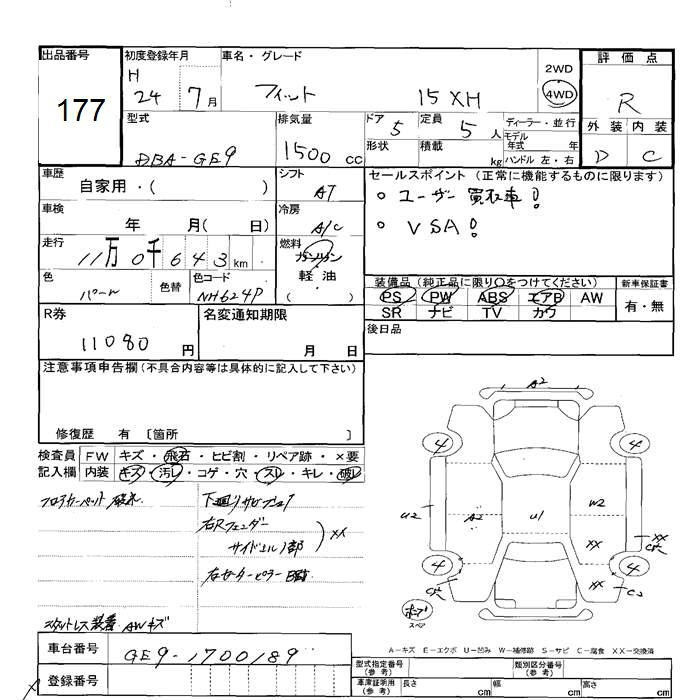 出品番号
177
初度登録年月
H 24 7月
車名・グレード
フィット 15XH
2WD
4WD
評価点
R
型式
DBA-GE9
排気量
1500 cc
ドア 5
形状
定員 5人
積載 kg
ディーラー・並行
モデル年式 年式
ハンドル 左・右
外装 内装
D C
車歴
自家用・( )
シフト
AT
セールスポイント (正常に機能するものに限ります)
。ユーザー買取車!
。VSA!
車検
年 月( 日)
冷房
A/C
走行
11万0千643km
燃料
ガソリン
軽油
( )
色
パール
色替
色コード
NH624P
装備品 (純正品に限り○をつけてください)
PS PW ABS エアB AW
SR ナビ TV カワ
新車保証書
有・無
R券
11080 円
名変通知期限
月 日
後日品
注意事項申告欄 (不具合内容等は具体的に記入して下さい)
修復歴 有 〔箇所 〕
検査員 FW キズ・飛石・ヒビ割・リペア跡・×要
記入欄 内装 キズ・汚レ・コゲ・穴・スレ・キレ・破レ
フロアカーペット
下廻りサビ
右Rフェンダー
サイドシル 部
XX
スタッドレス装着 AWキズ
A2
4
4
U2
A2
U1
W2
XX
XX
XX
4
4
スペア
A-キズ E-エクボ U-凹み W-補修跡 S-サビ C-腐食 XX-交換済
車台番号
GE9-1700189
登録番号
型式指定番号
(参考)
類別区分番号
(参考)
車庫証明用
(参考)
長さ cm
幅 cm
高さ cm